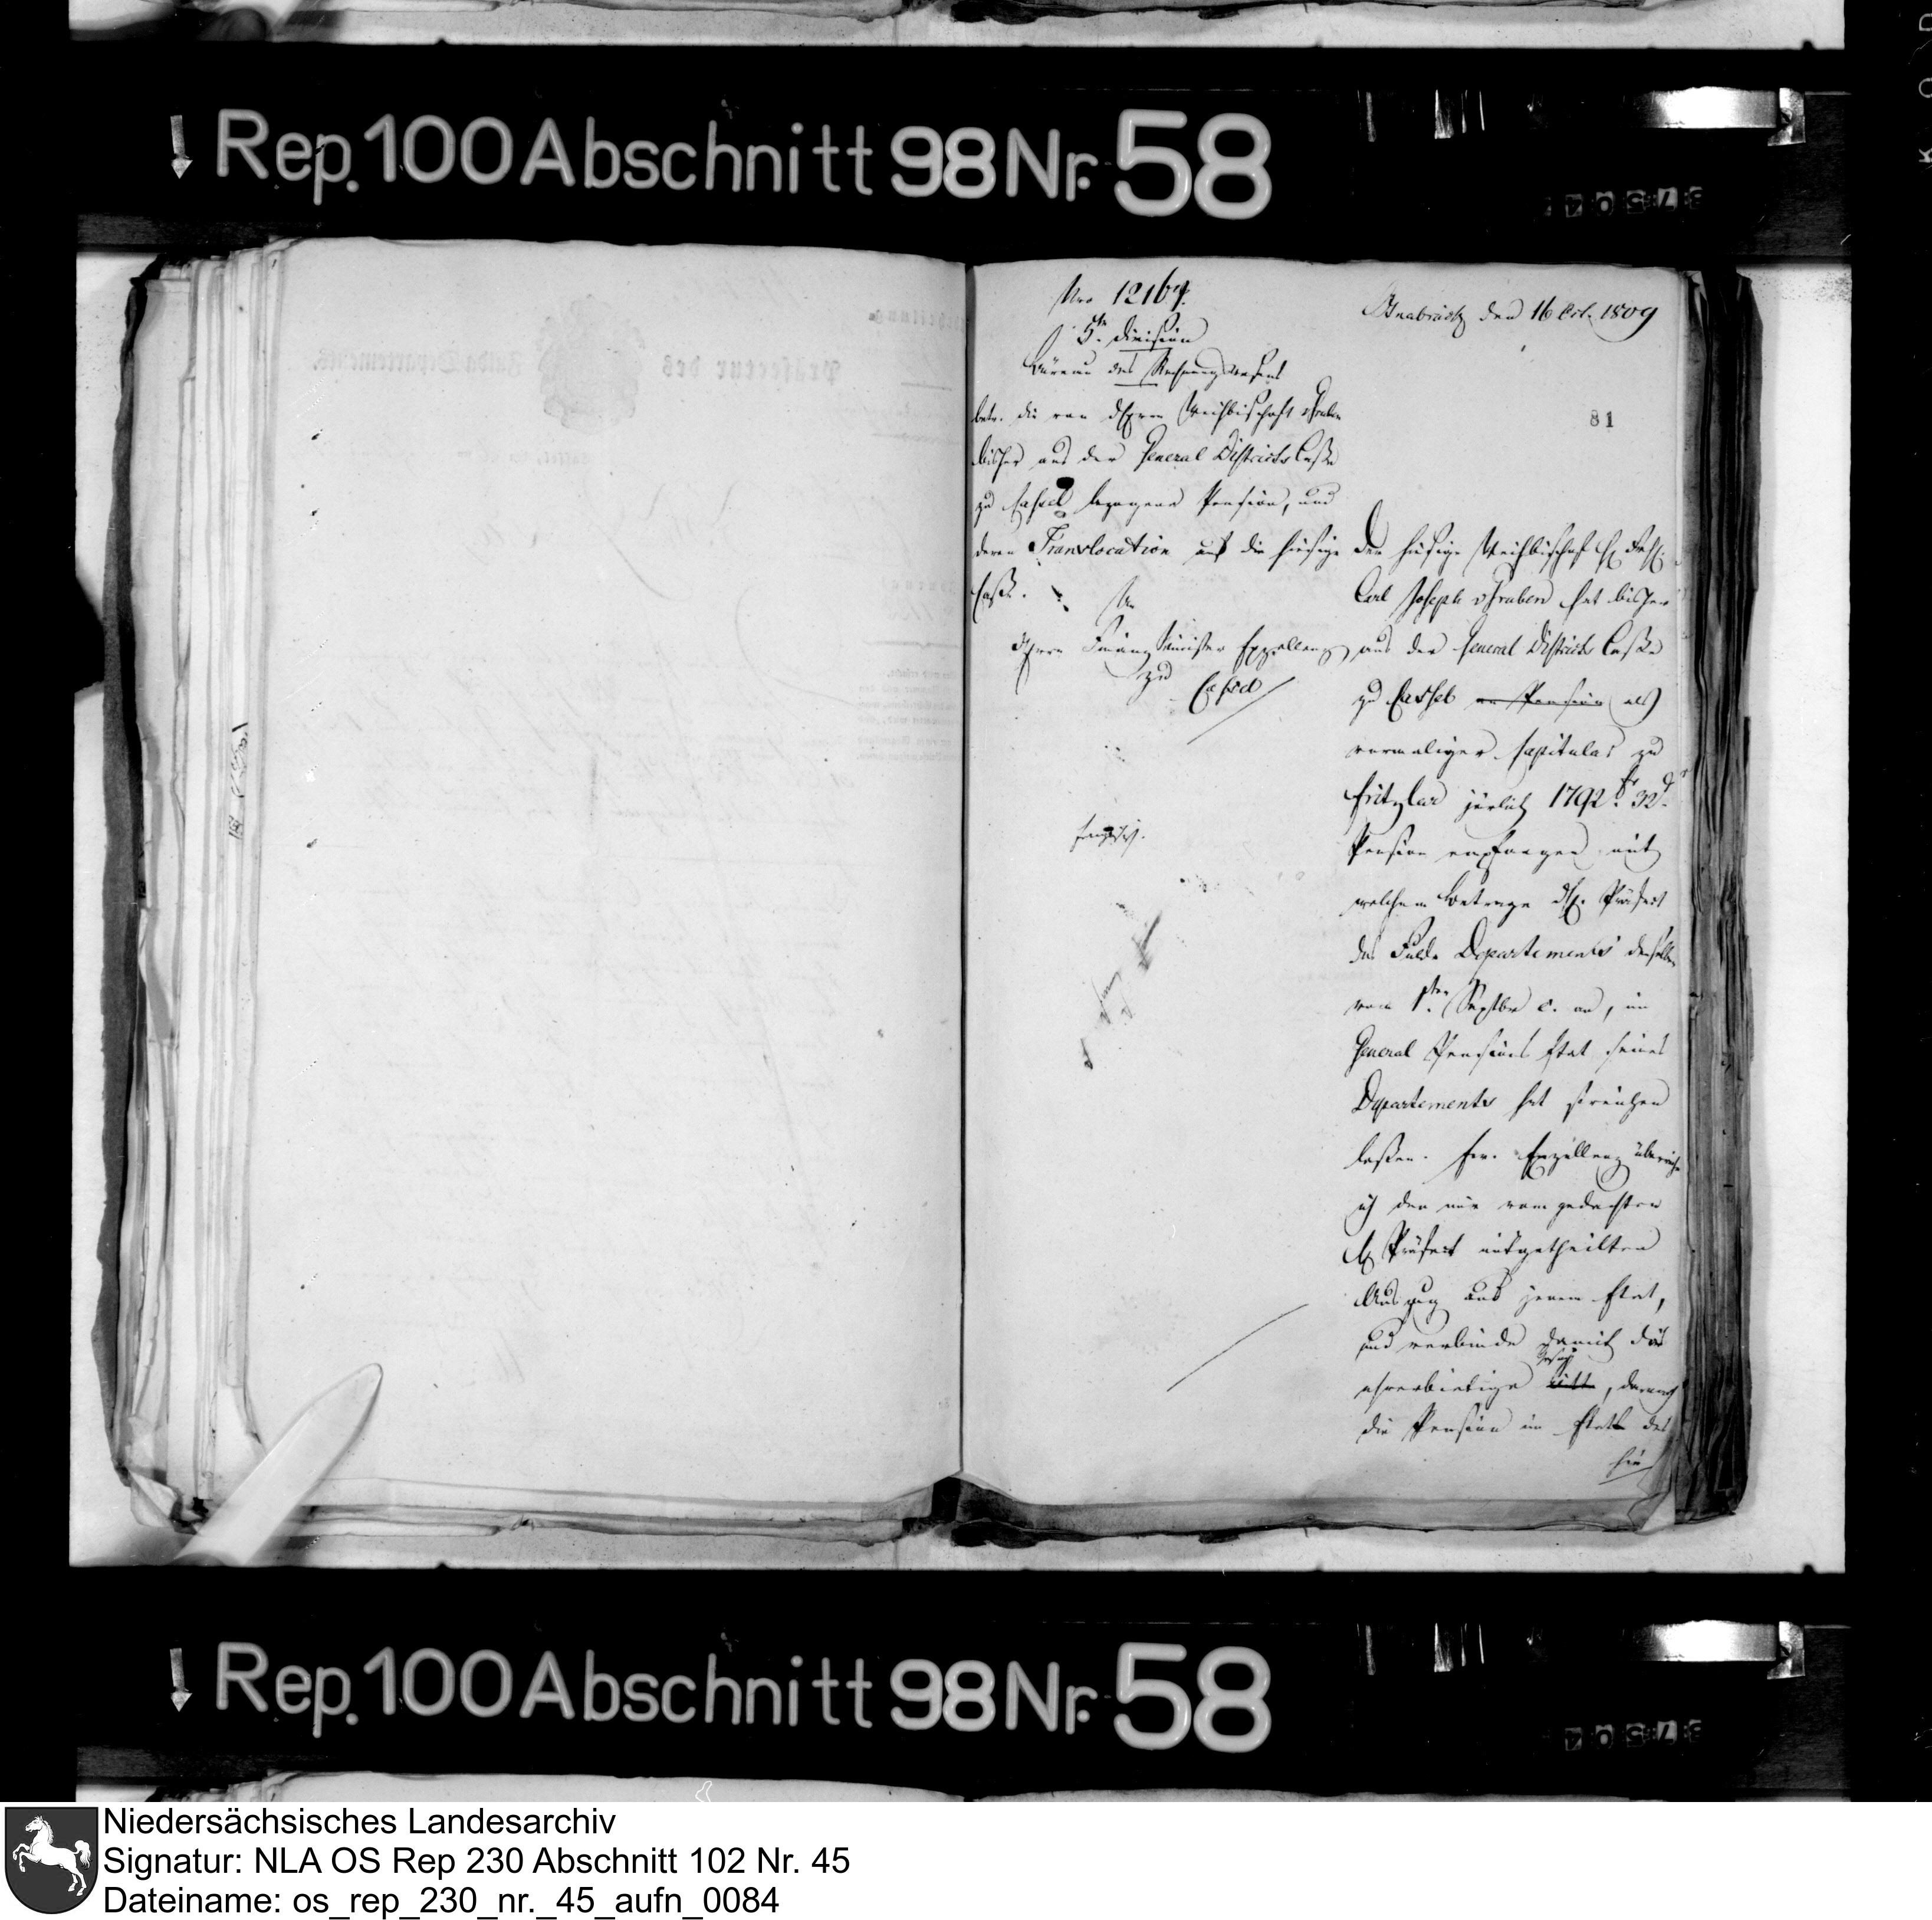 Rep. 100 Abschnitt 98 Nr. 58
Nro 12167.
5te division
Büreau des Rechnungswesens
betr. die von dem Herrn Weihbischoff v Gruben
bisher aus der General Districts Casse
zu Cassel bezogene Pension, und
deren Translocation auf die hiesige
Casse.
An
Herrn Finanz Minister Exzellenz
zu
Cassel
Osnabrück den 16 Oct. 1809
81
Der hiesige Weihbischof H.
Carl Joseph v Gruben hat bisher
aus der General Districts Casse
zu Cassel an Pension als
vormaliger Capitular zu
Fritzlar järlich 1792 fr 32
Pension empfangen mit
welchem Betrage H. Präfect
des Fulda Departements denselben
vom 1ten Septbr c. an, im
General Pensions Etat seines
Departements hat streichen
lassen. Ew. Exzellenz überreiche
ich den mir vom gedachten
H Präfect mitgetheilten
Auszug aus jenem Etat,
und verbinde damit das
ehrerbietige Bitte, darnach
die Pension im Etat des
hie
Rep. 100 Abschnitt 98 Nr. 58
Niedersächsisches Landesarchiv
Signatur: NLA OS Rep 230 Abschnitt 102 Nr. 45
Dateiname: os_rep_230_nr._45_aufn_0084